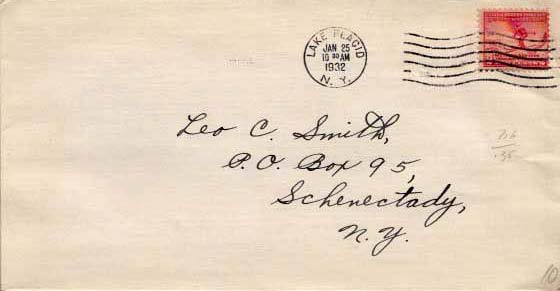 LAKE PLACID
JAN 25
10 30 AM
1932
N. Y.
Leo C. Smith,
P.O. Box 95,
Schenectady,
N.Y.
10